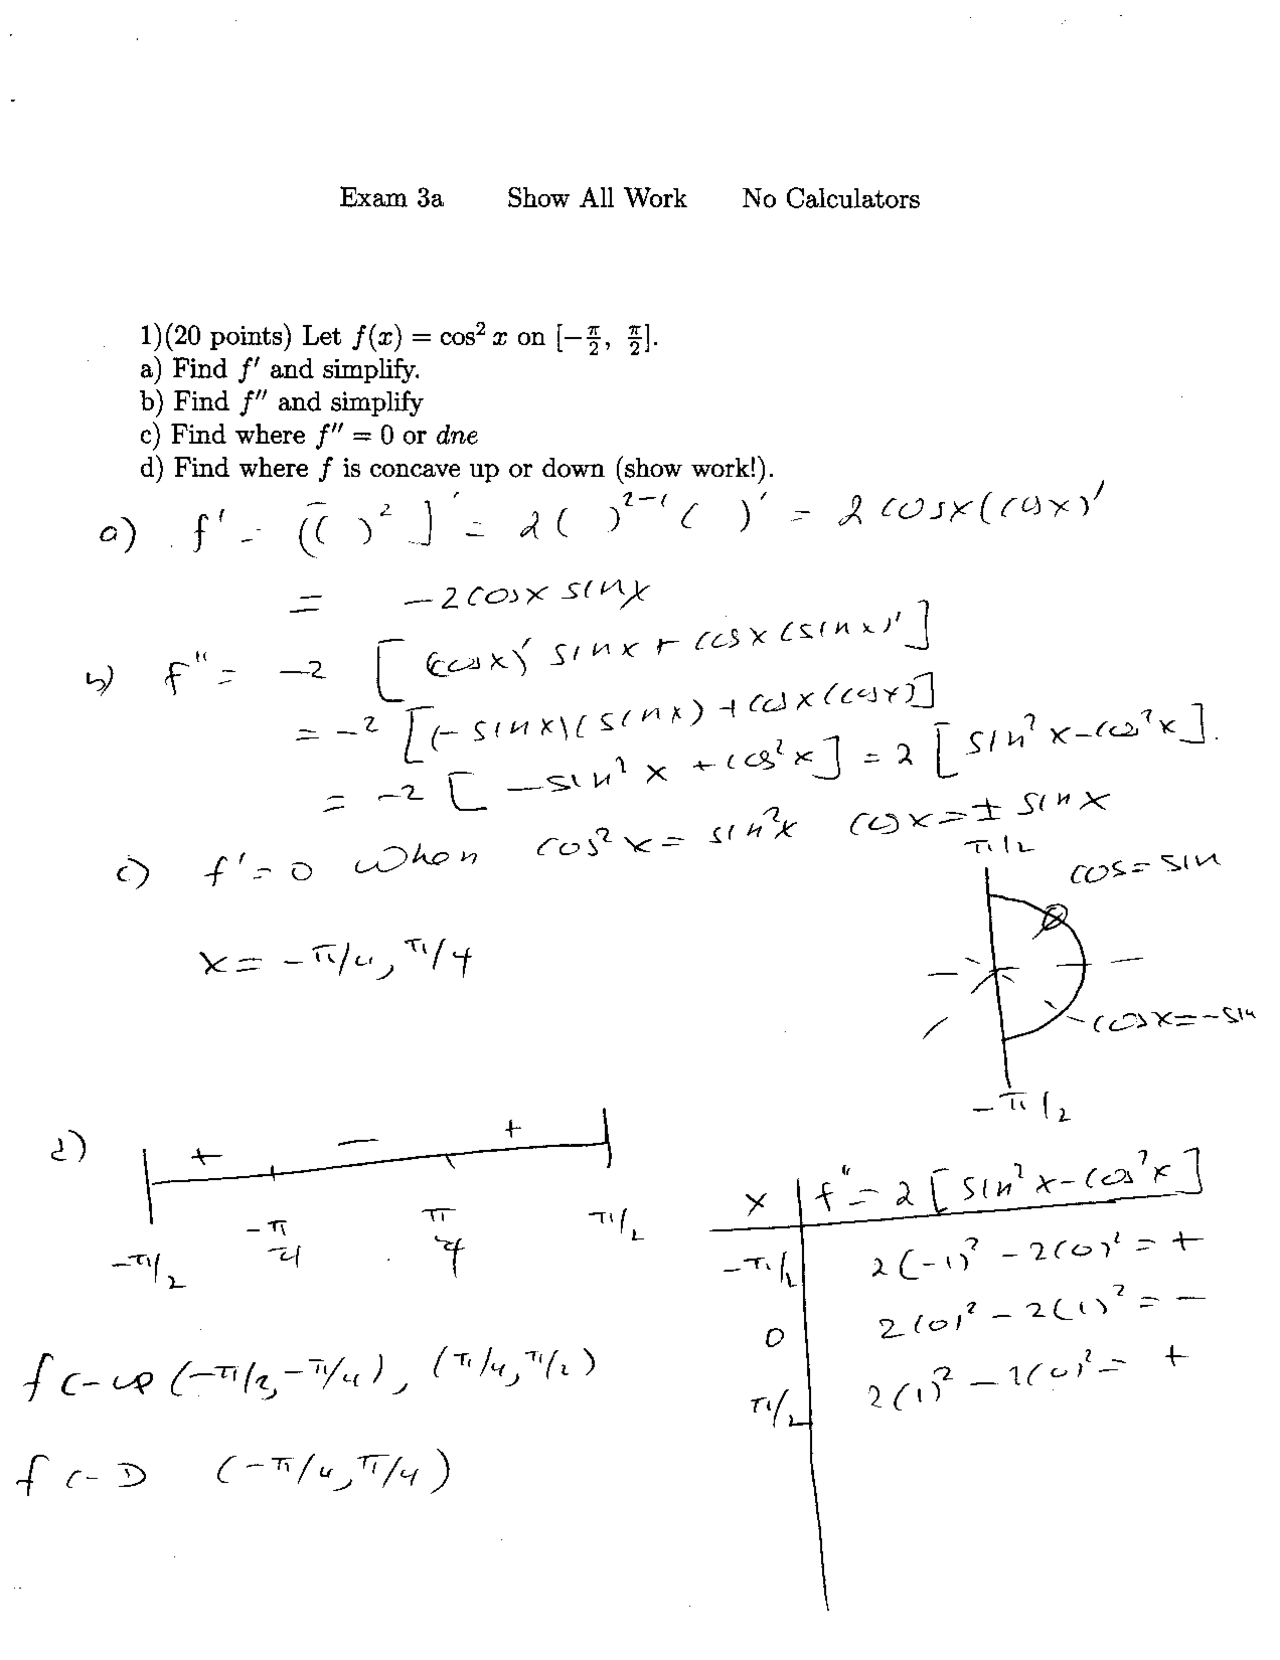 Exam 3a Show All Work No Calculators
1)(20 points) Let f(x) = cos² x on [−π/2, π/2].
a) Find f′ and simplify.
b) Find f″ and simplify
c) Find where f″ = 0 or dne
d) Find where f is concave up or down (show work!).
a) f' = [( )²]' = 2( )²⁻¹( )' = 2cosx(cosx)'
= −2cosx sinx
b) f" = −2 [(cosx)' sinx + cosx(sinx)']
= −2 [(−sinx)(sinx) + cosx(cosx)]
= −2 [−sin²x + cos²x] = 2 [sin²x−cos²x].
c) f' = 0 when cos²x = sin²x cosx = ± sinx
π/2
cos = sin
x = −π/4, π/4
cosx = −sin
−π/2
d) + − +
−π/2 −π/4 π/4 π/2
x f" = 2 [sin²x−cos²x]
−π/2 2(−1)² − 2(0)² = +
0 2(0)² − 2(1)² = −
π/2 2(1)² − 2(0)² = +
f c-up (−π/2, −π/4), (π/4, π/2)
f c-D (−π/4, π/4)